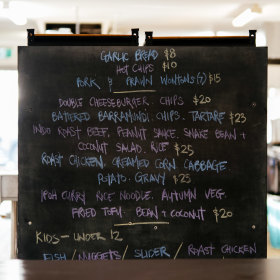 GARLIC BREAD $8
HOT CHIPS $10
PORK & PRAWN WONTONS (7) $15
DOUBLE CHEESEBURGER. CHIPS $20
BATTERED BARRAMUNDI. CHIPS. TARTARE $23
INDO ROAST BEEF. PEANUT SAUCE. SNAKE BEAN +
COCONUT SALAD. RICE $25
ROAST CHICKEN. CREAMED CORN. CABBAGE.
POTATO. GRAVY $25
CURRY RICE NOODLE. AUTUMN VEG.
FRIED TOFU. BEAN + COCONUT $20
KIDS - UNDER 12
FISH / NUGGETS / SLIDER / ROAST CHICKEN